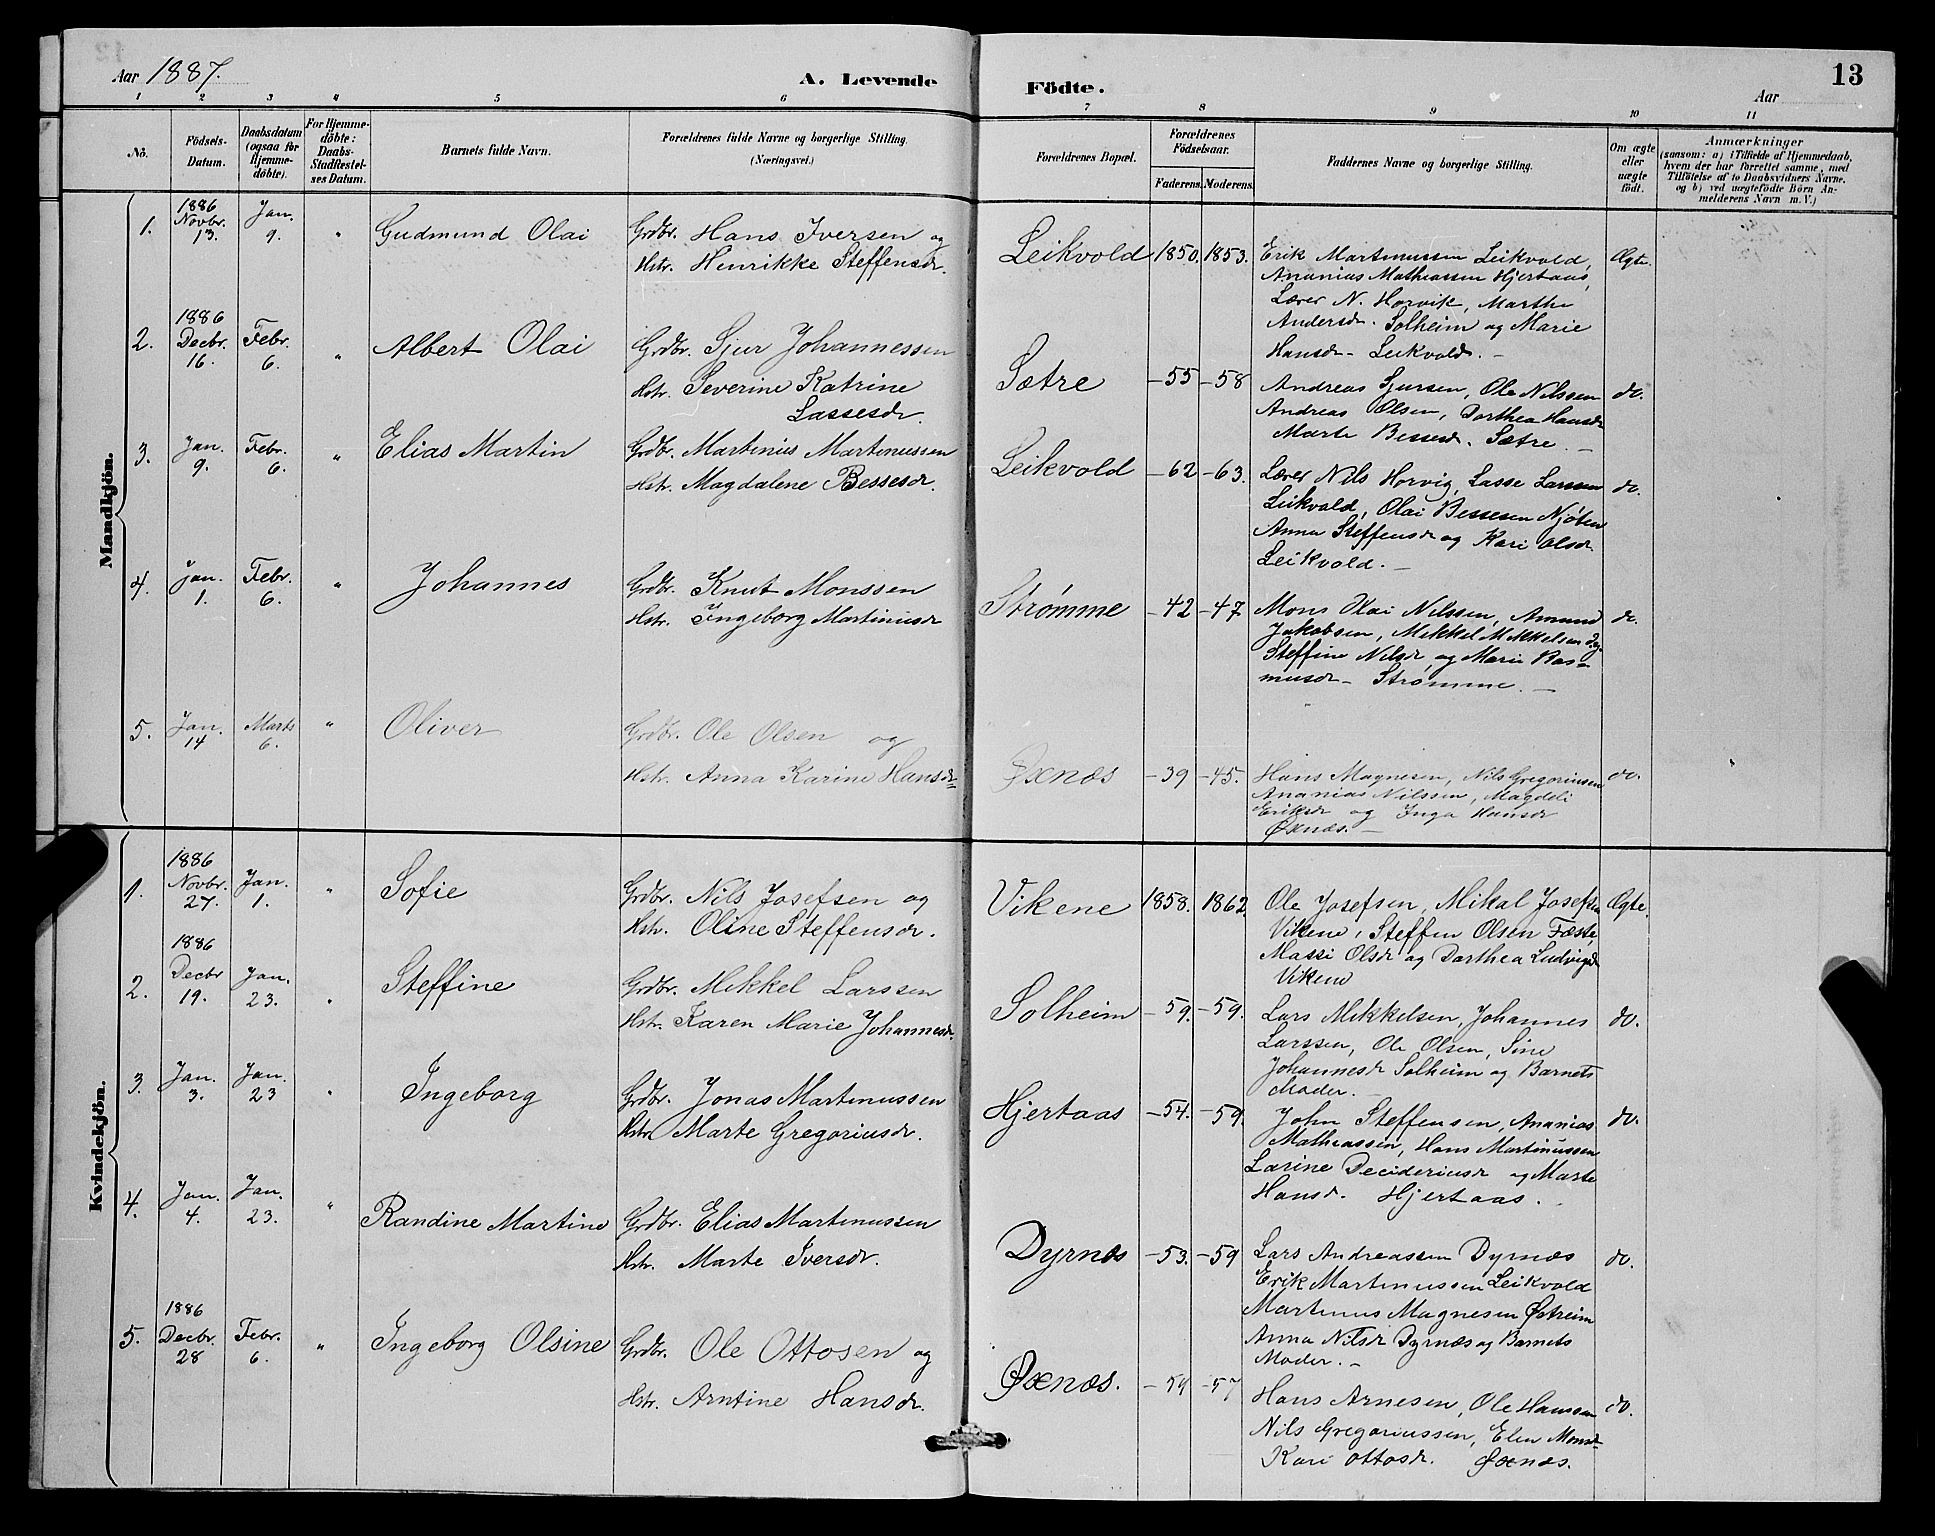 Aar 1887.
A. Levende
Födte.
13
Aar
1 2 3 4 5 6 7 8 9 10 11
No.
Födsels-
Datum.
Daabsdatum
(ogsaa for
Hjemme-
döbte).
For Hjemme-
döbte:
Daabs-
Stadfæstel-
ses Datum.
Barnets fulde Navn.
Forældrenes fulde Navne og borgerlige Stilling.
(Næringsvei.)
Forældrenes Bopæl.
Forældrenes
Födselsaar.
Faderens. Moderens.
Faddernes Navne og borgerlige Stilling.
Om ægte
eller
uægte
født.
Anmærkninger
(saasom: a) i Tilfælde af Hjemmedaab,
hvem der har forrettet samme, med
Tilföielse af to Daabsvidners Navne,
og b) ved uægtefödte Börn An-
melderens Navn m. V.)
Mandkjön.
1. 1886 Novbr. 13. Jan. 9. " Gudmund Olai
Grdbr. Hans Iversen og
Hstr. Henrikke Steffensdr.
Leikvold 1850. 1853.
Erik Martinussen Leikvold,
Ananias Mathiassen Hjertaas,
Lærer N. Horvik, Marthe
Andersdr. Solheim og Marie
Hansdr. Leikvold. –
Ægte.
2. 1886 Decbr. 16. Febr. 6. " Albert Olai
Grdbr. Sjur Johannessen
Hstr. Severine Katrine
Lassesdr.
Sætre –55 –58
Andreas Sjursen, Ole Nilssen
Andreas Olsen, Dorthea Hansdr
Marte Bessesdr. Sætre. –
do.
3. Jan. 9. Febr. 6. " Elias Martin
Grdbr. Martinus Martinussen
Hstr. Magdalene Bessesdr.
Leikvold –62 –63.
Lærer Nils Horvig, Lasse Larssen
Leikvold, Olai Bessesen Njöten
Anna Steffensdr og Kari Olsdr.
Leikvold. –
do.
4. Jan. 1. Febr. 6. " Johannes
Grdbr. Knut Monssen
Hstr. Ingeborg Martinusdr
Strømme –42 –47
Mons Olai Nilssen, Amund
Jakobsen, Mikkel Mikkelsen
Steffine Nilsdr, og Marie Ras-
musdr – Strømme. –
do.
5. Jan. 14 Marts 6. " Oliver
Grdbr. Ole Olsen og
Hstr. Anna Karine Hansdr
Øxnæs –39 –45.
Hans Magnesen, Nils Gregoriussen
Ananias Nilssen, Magdeli
Eriksdr og Inga Hansdr
Øxnæs. –
do.
Kvindekjön.
1. 1886 Novbr. 27. Jan. 1. " Sofie
Grdbr. Nils Josefsen og
Hstr. Oline Steffensdr.
Vikene 1858. 1862.
Ole Josefsen, Mikal Josefsen
Vikene, Steffen Olsen Fæste,
Massi Olsdr og Dorthea Ludvigsdr
Vikene
Ægte.
2. 1886 Decbr 19. Jan. 23. " Steffine
Grdbr. Mikkel Larssen
Hstr. Karen Marie Johannesdr.
Solheim –59. –59.
Lars Mikkelsen, Johannes
Larssen, Ole Olsen, Sine
Johannesdr Solheim og Barnets
Moder. –
do.
3. Jan. 3. Jan. 23 " Ingeborg
Grdbr. Jonas Martinussen
Hstr. Marte Gregoriusdr.
Hjertaas –54. –59.
John Steffensen, Ananias
Mathiassen, Hans Martinussen
Larine Decideriusdr og Marte
Hansdr. Hjertaas.
do.
4. Jan. 4. Jan. 23. " Randine Martine
Grdbr. Elias Martinussen
Hstr. Marte Iversdr.
Dyrnæs –53. –59
Lars Andreassen Dyrnæs
Erik Martinussen Leikvold
Martinus Magnesen Østreim
Anna Nilsdr Dyrnæs og Barnets
Moder. –
do.
5. 1886 Decbr. 28 Febr. 6. " Ingeborg Olsine
Grdbr. Ole Ottosen og
Hstr. Arntine Hansdr.
Øxnæs. –59 –57
Hans Arnesen, Ole Hanssen
Nils Gregoriussen, Elen Monsdr
Kari Ottosdr. Øxnæs.
do.